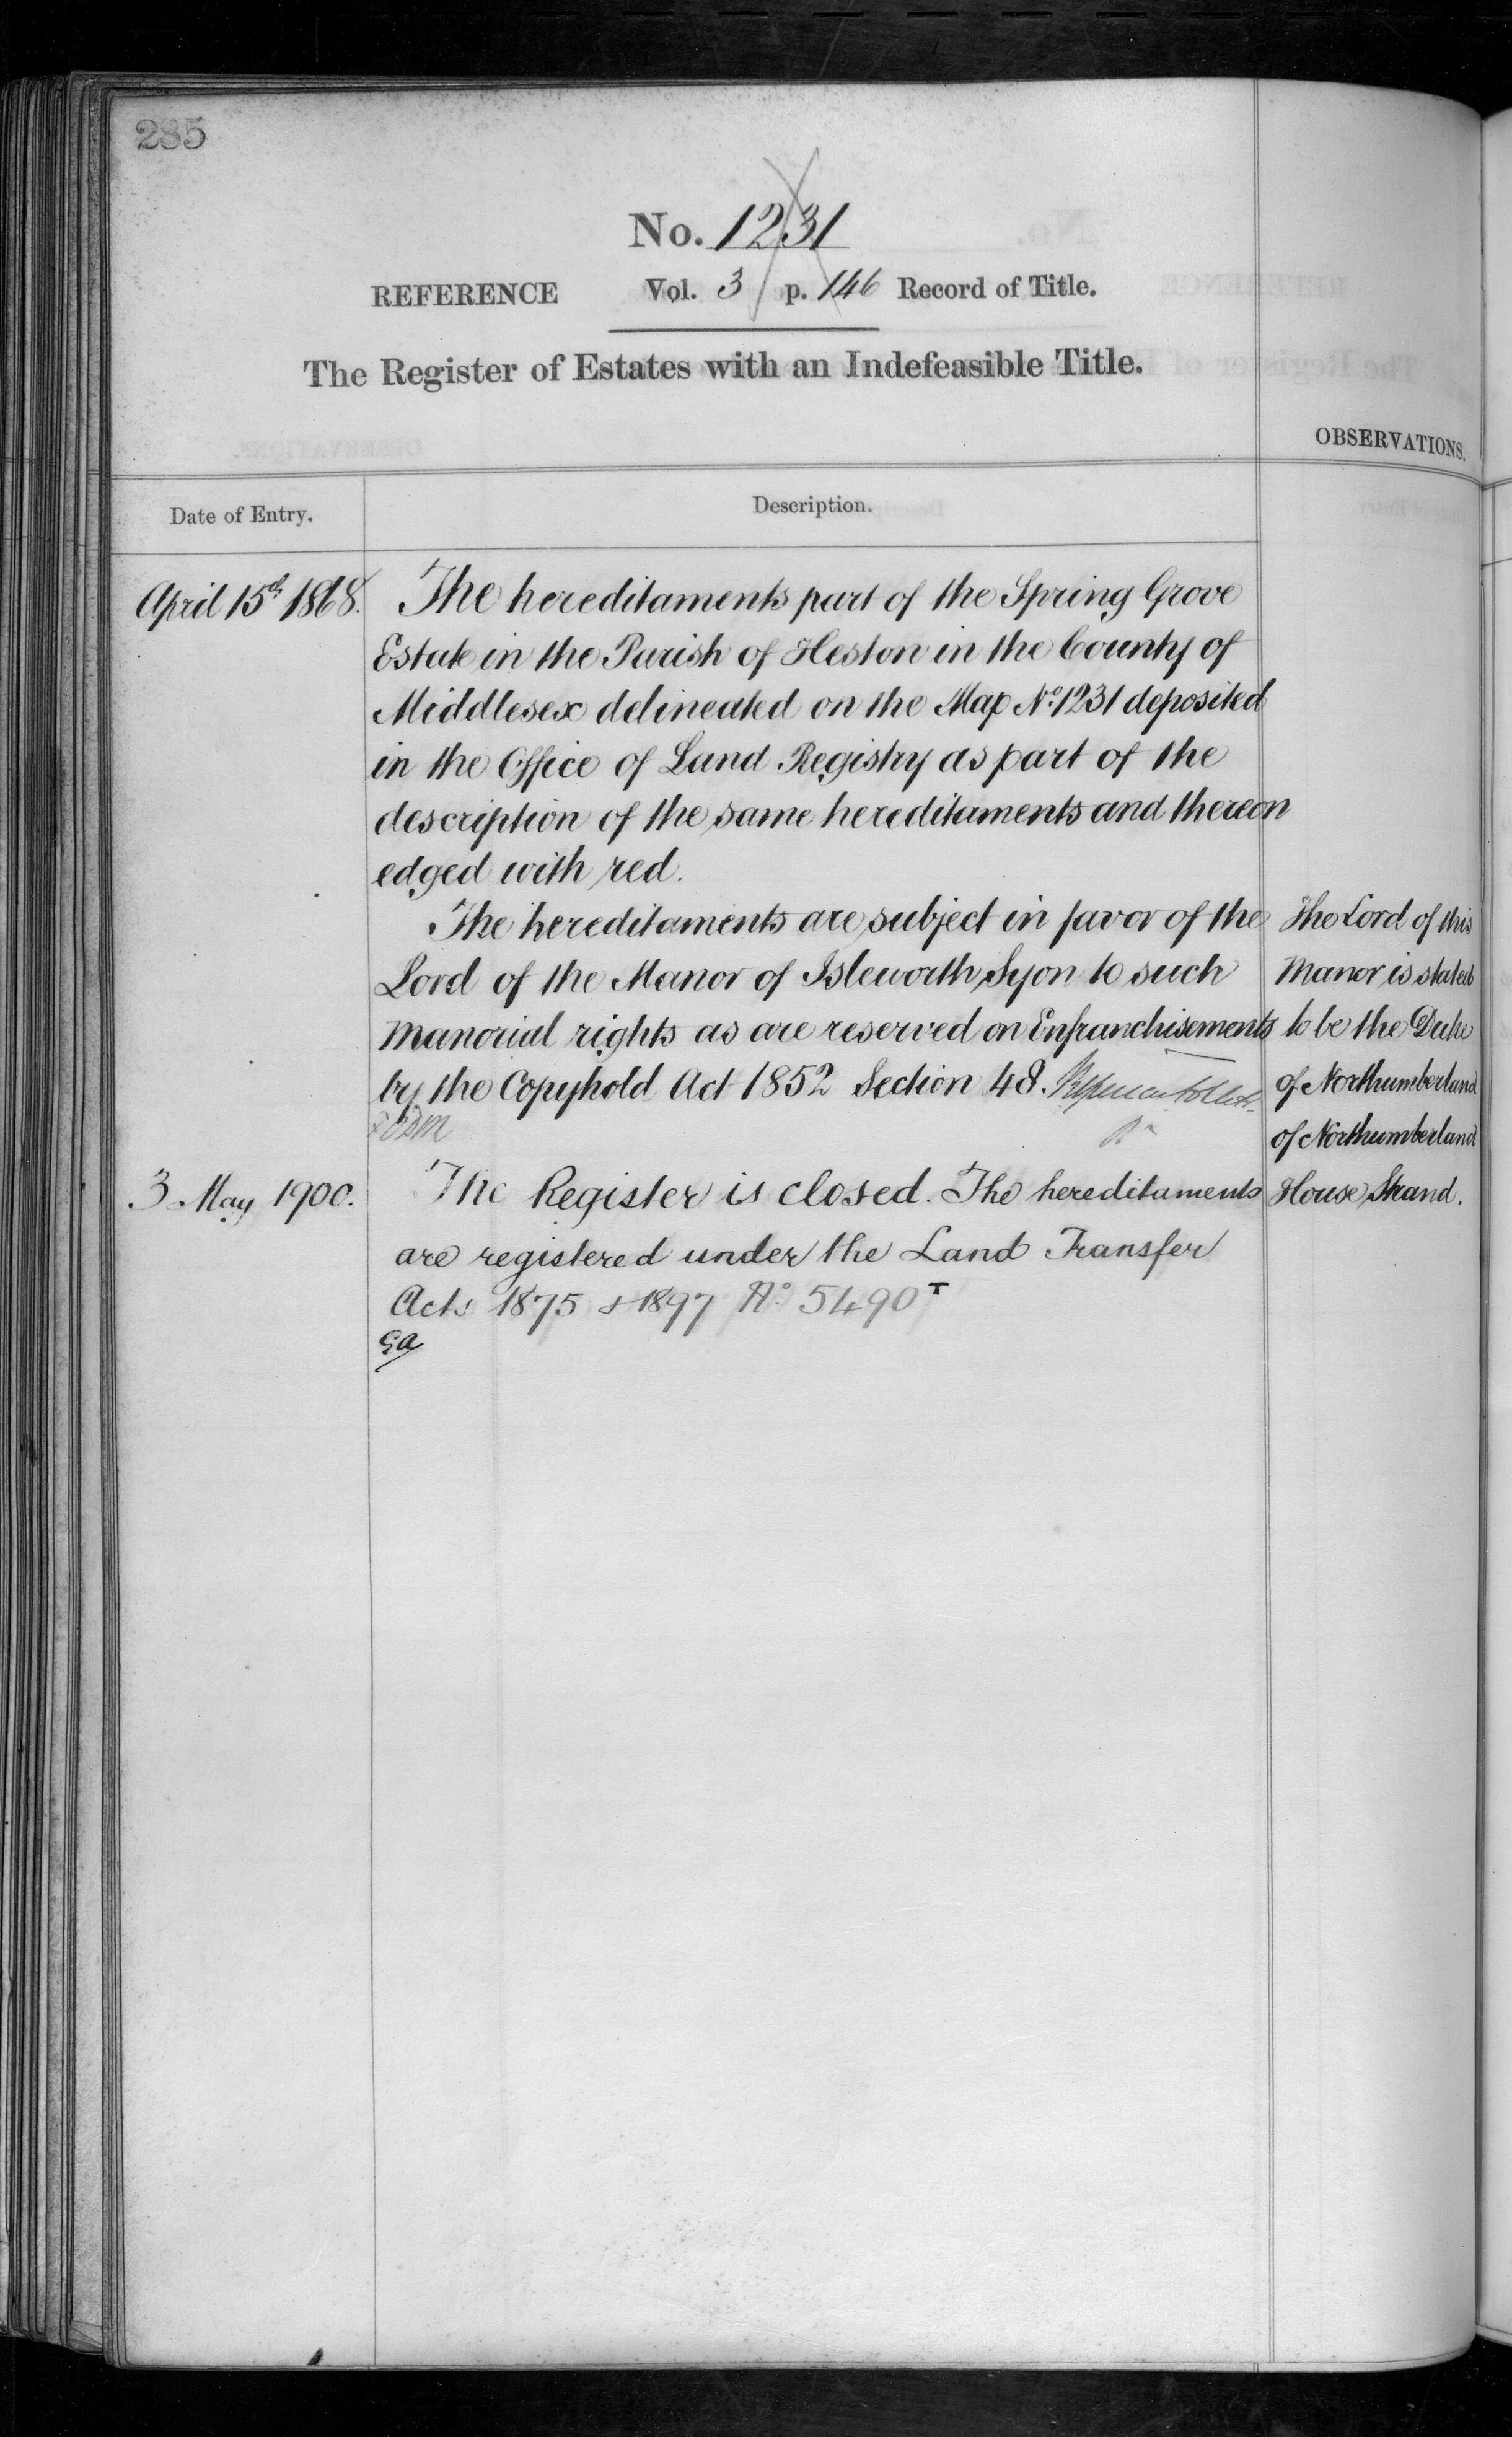 285
No. 1231
REFERENCE Vol. 3 p. 146 Record of Title.
The Register of Estates with an Indefeasible Title.
OBSERVATIONS.
Date of Entry. Description.
April 15th 1868. The hereditaments part of the Spring Grove
Estate in the Parish of Heston in the County of
Middlesex delineated on the Map No. 1231 deposited
in the Office of Land Registry as part of the
description of the same hereditaments and thereon
edged with red.
The hereditaments are subject in favor of the
Lord of the Manor of Isleworth Syon to such
Manorial rights as are reserved on Enfranchisements
by the Copyhold Act 1852 Section 48.
The Lord of this
Manor is stated
to be the Duke
of Northumberland
of Northumberland
House Strand.
3 May 1900. The Register is closed. The hereditaments
are registered under the Land Transfer
Acts 1875 & 1897 No. 5490 T